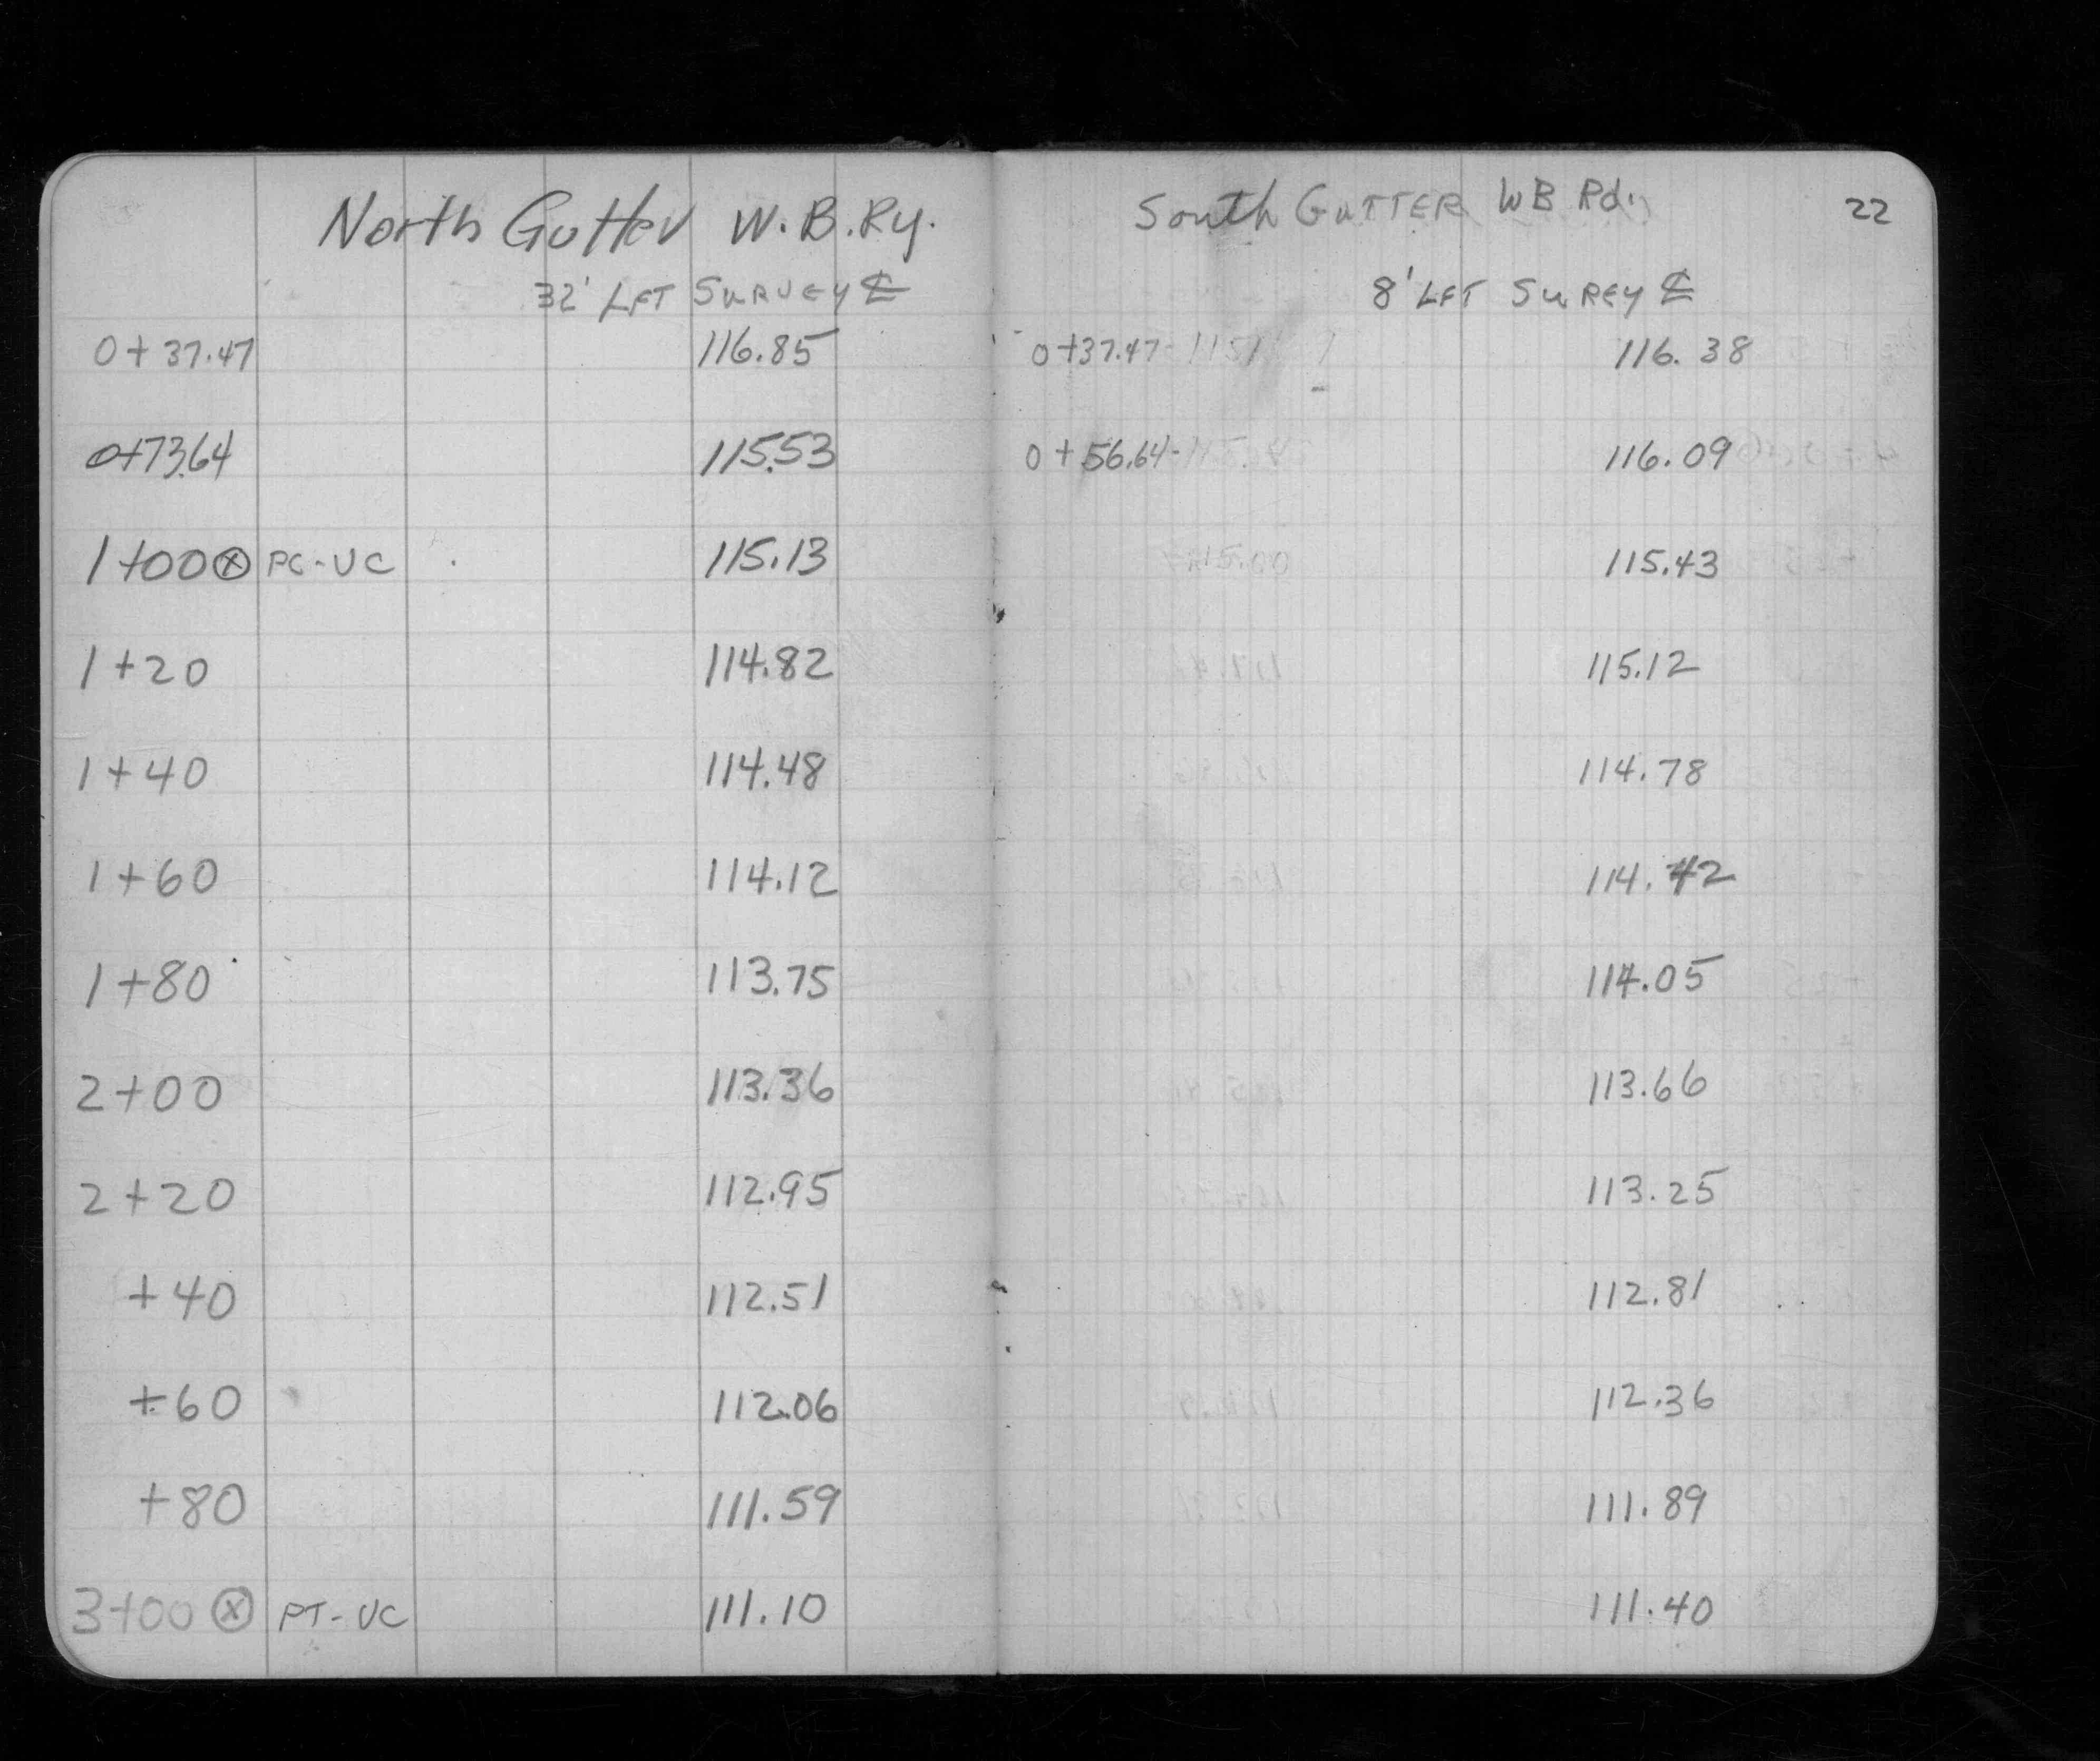 North Gutter W.B.Ry.
32' LFT SURVEY ℄
0+37.47 116.85
0+73.64 115.53
1+00 ⊗ PC-VC 115.13
1+20 114.82
1+40 114.48
1+60 114.12
1+80 113.75
2+00 113.36
2+20 112.95
+40 112.51
+60 112.06
+80 111.59
3+00 ⊗ PT-VC 111.10
South GUTTER WB Rd. 22
8' LFT SUREY ℄
0+37.47 116.38
0+56.64 116.09
115.43
115.12
114.78
114.42
114.05
113.66
113.25
112.81
112.36
111.89
111.40